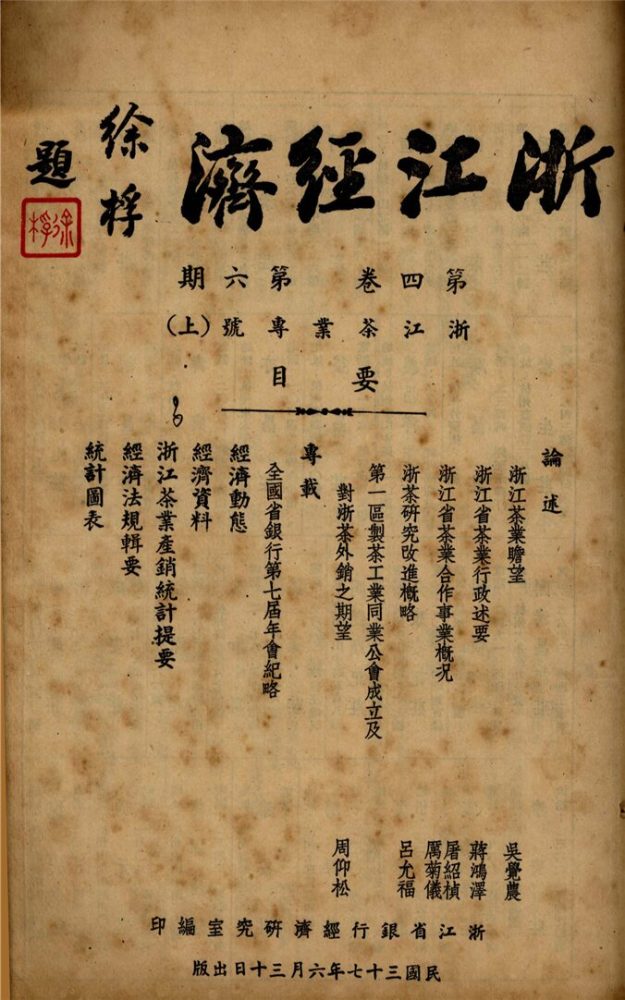 浙江經濟
徐桴
題
徐桴
第四卷第六期
浙江茶業專號(上)
要目
論述
浙江茶業瞻望 吳覺農
浙江省茶業行政述要 蔣鴻澤
浙江省茶業合作事業概況 屠紹楨 厲菊儀
浙茶研究改進概略 呂允福
第一區製茶工業同業公會成立及
對浙茶外銷之期望 周仰松
專載
全國省銀行第七屆年會紀略
經濟動態
經濟資料
浙江茶業產銷統計提要
經濟法規輯要
統計圖表
浙江省銀行經濟研究室編印
民國三十七年六月三十日出版